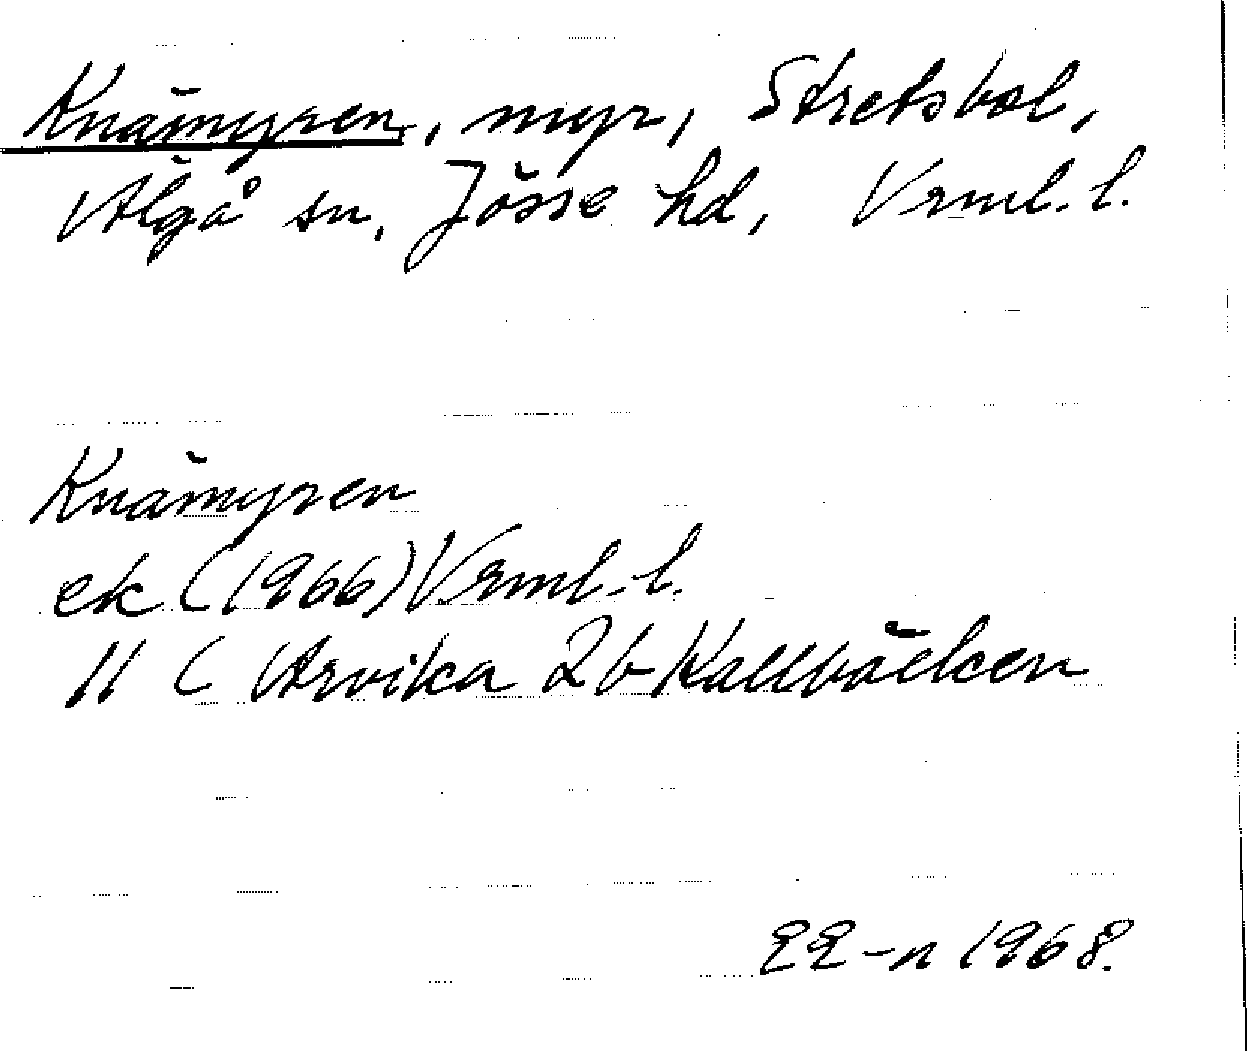 Knämyren, myr, Stretsbol,
Älgå sn, Jösse hd, Vrml. l.
Knämyren
ek (1966) Vrml. l.
11 C Arvika 2b Kallbäcken
EE-n 1968.